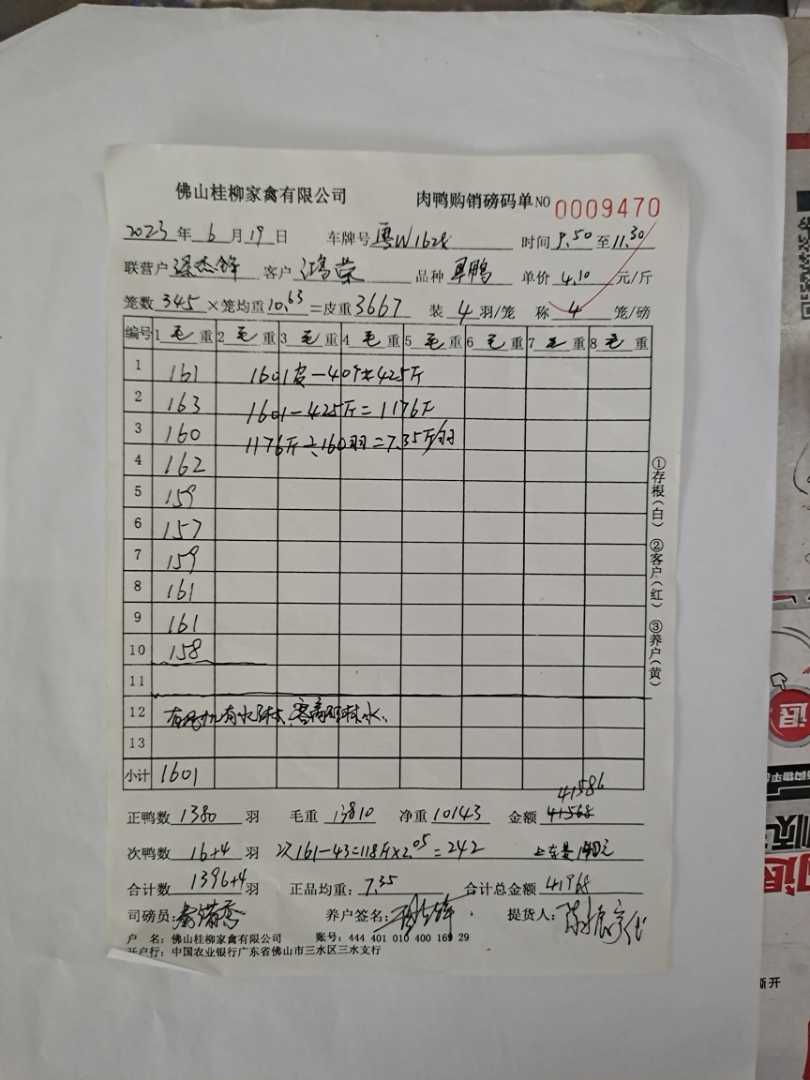 佛山桂柳家禽有限公司 肉鸭购销磅码单NO 0009470
2023年6月19日 车牌号 粤W162 时间 9.50 至 11.30
联营户 客户 鸿荣 品种 单价 4.10 元/斤
笼数 345 ×笼均重 10.63 =皮重 3667 装 4 羽/笼 称 4 笼/磅
编号 1 毛重 2 毛重 3 毛重 4 毛重 5 毛重 6 毛重 7 毛重 8 毛重
1 161 1601皮-40个±425斤
2 163 1601-425斤=1176斤
3 160 1176斤÷160羽=7.35斤/羽
4 162
5 159
6 157
7 159
8 161
9 161
10 158
11
12 水
13
小计 1601
41586
正鸭数 1380 羽 毛重 13810 净重 10143 金额 41568
次鸭数 16+4 羽 次161-43=118斤×2.05=242 上车费 140元
合计数 1396+4 羽 正品均重: 7.35 合计总金额 41968
司磅员: 养户签名: 提货人:
户 名: 佛山桂柳家禽有限公司 账号: 444 401 010 400 169 29
开户行: 中国农业银行广东省佛山市三水区三水支行
①存根(白) ②客户(红) ③养户(黄)
退
新开